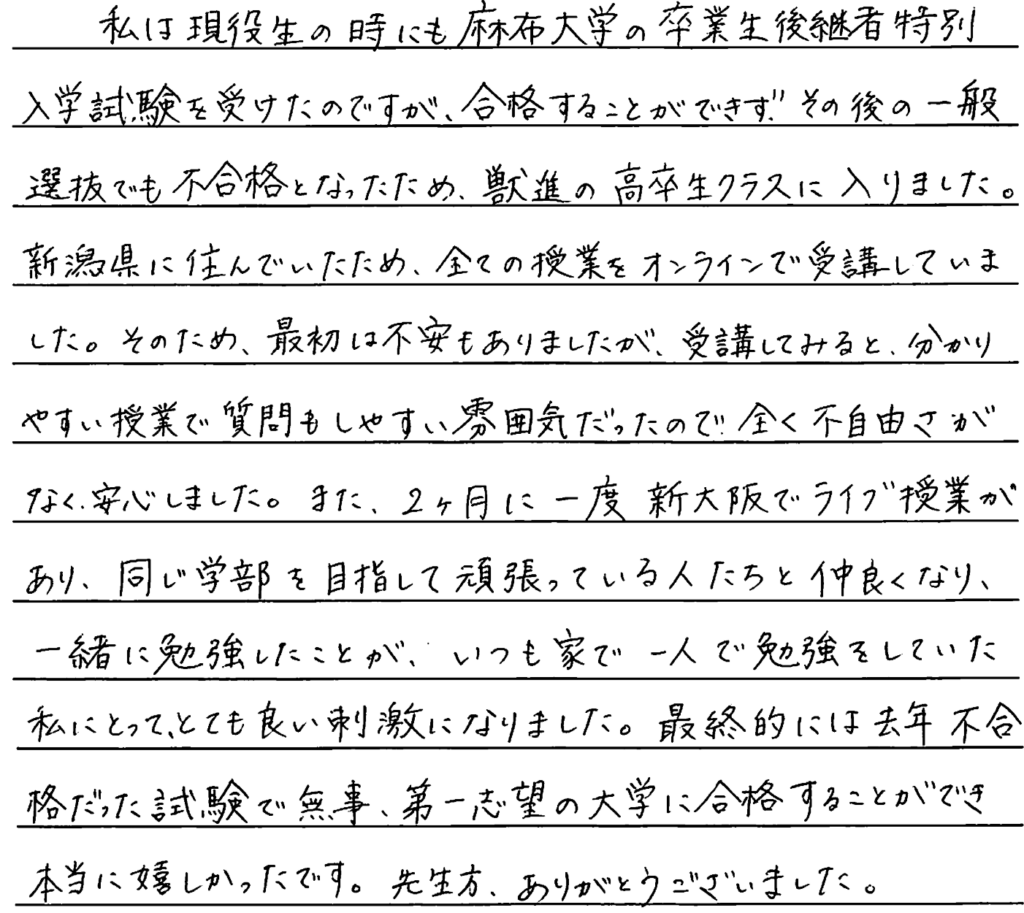 私は現役生の時にも麻布大学の卒業生後継者特別
入学試験を受けたのですが、合格することができず、その後の一般
選抜でも不合格となったため、獣進の高卒生クラスに入りました。
新潟県に住んでいたため、全ての授業をオンラインで受講していま
した。そのため、最初は不安もありましたが、受講してみると、分かり
やすい授業で質問もしやすい雰囲気だったので、全く不自由さが
なく、安心しました。また、2ヶ月に一度新大阪でライブ授業が
あり、同じ学部を目指して頑張っている人たちと仲良くなり、
一緒に勉強したことが、いつも家で一人で勉強をしていた
私にとって、とても良い刺激になりました。最終的には去年不合
格だった試験で無事、第一志望の大学に合格することができ
本当に嬉しかったです。先生方、ありがとうございました。